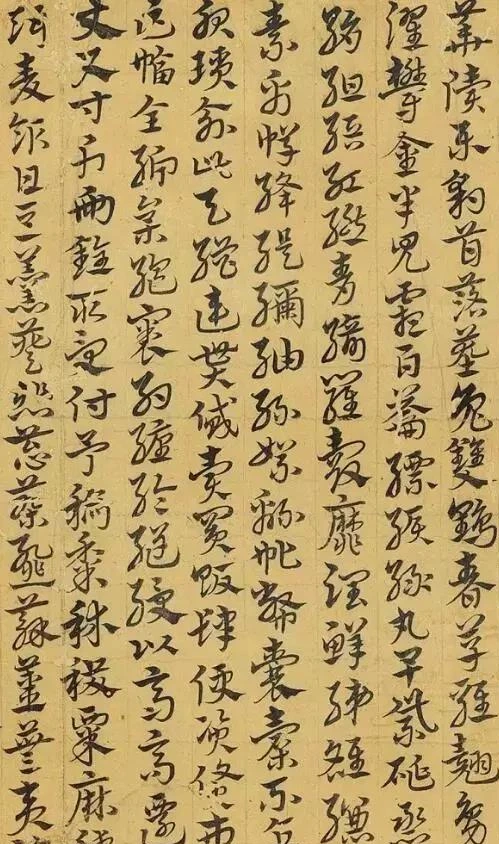 華洞樂豹首落莫兔雙鶴春草雞翹鳧
濯鬱金半見霜白縹綟綠丸早紫硟烝
絹紺縉紅繎青綺羅縠靡潤鮮綈絡縑
素帛蟬絳緹紬絲絮綿敝囊橐不直
服瑣緰此與繒連貰貸賣買販肆便資貨市
匹幅全枲縕裹約纏綸組綬以高遷
丈尺寸斤兩銓取受付予稻黍秫稷粟麻
餌麥飯甘豆羹葵韭蔥蓼蘇薑蕪荑鹽